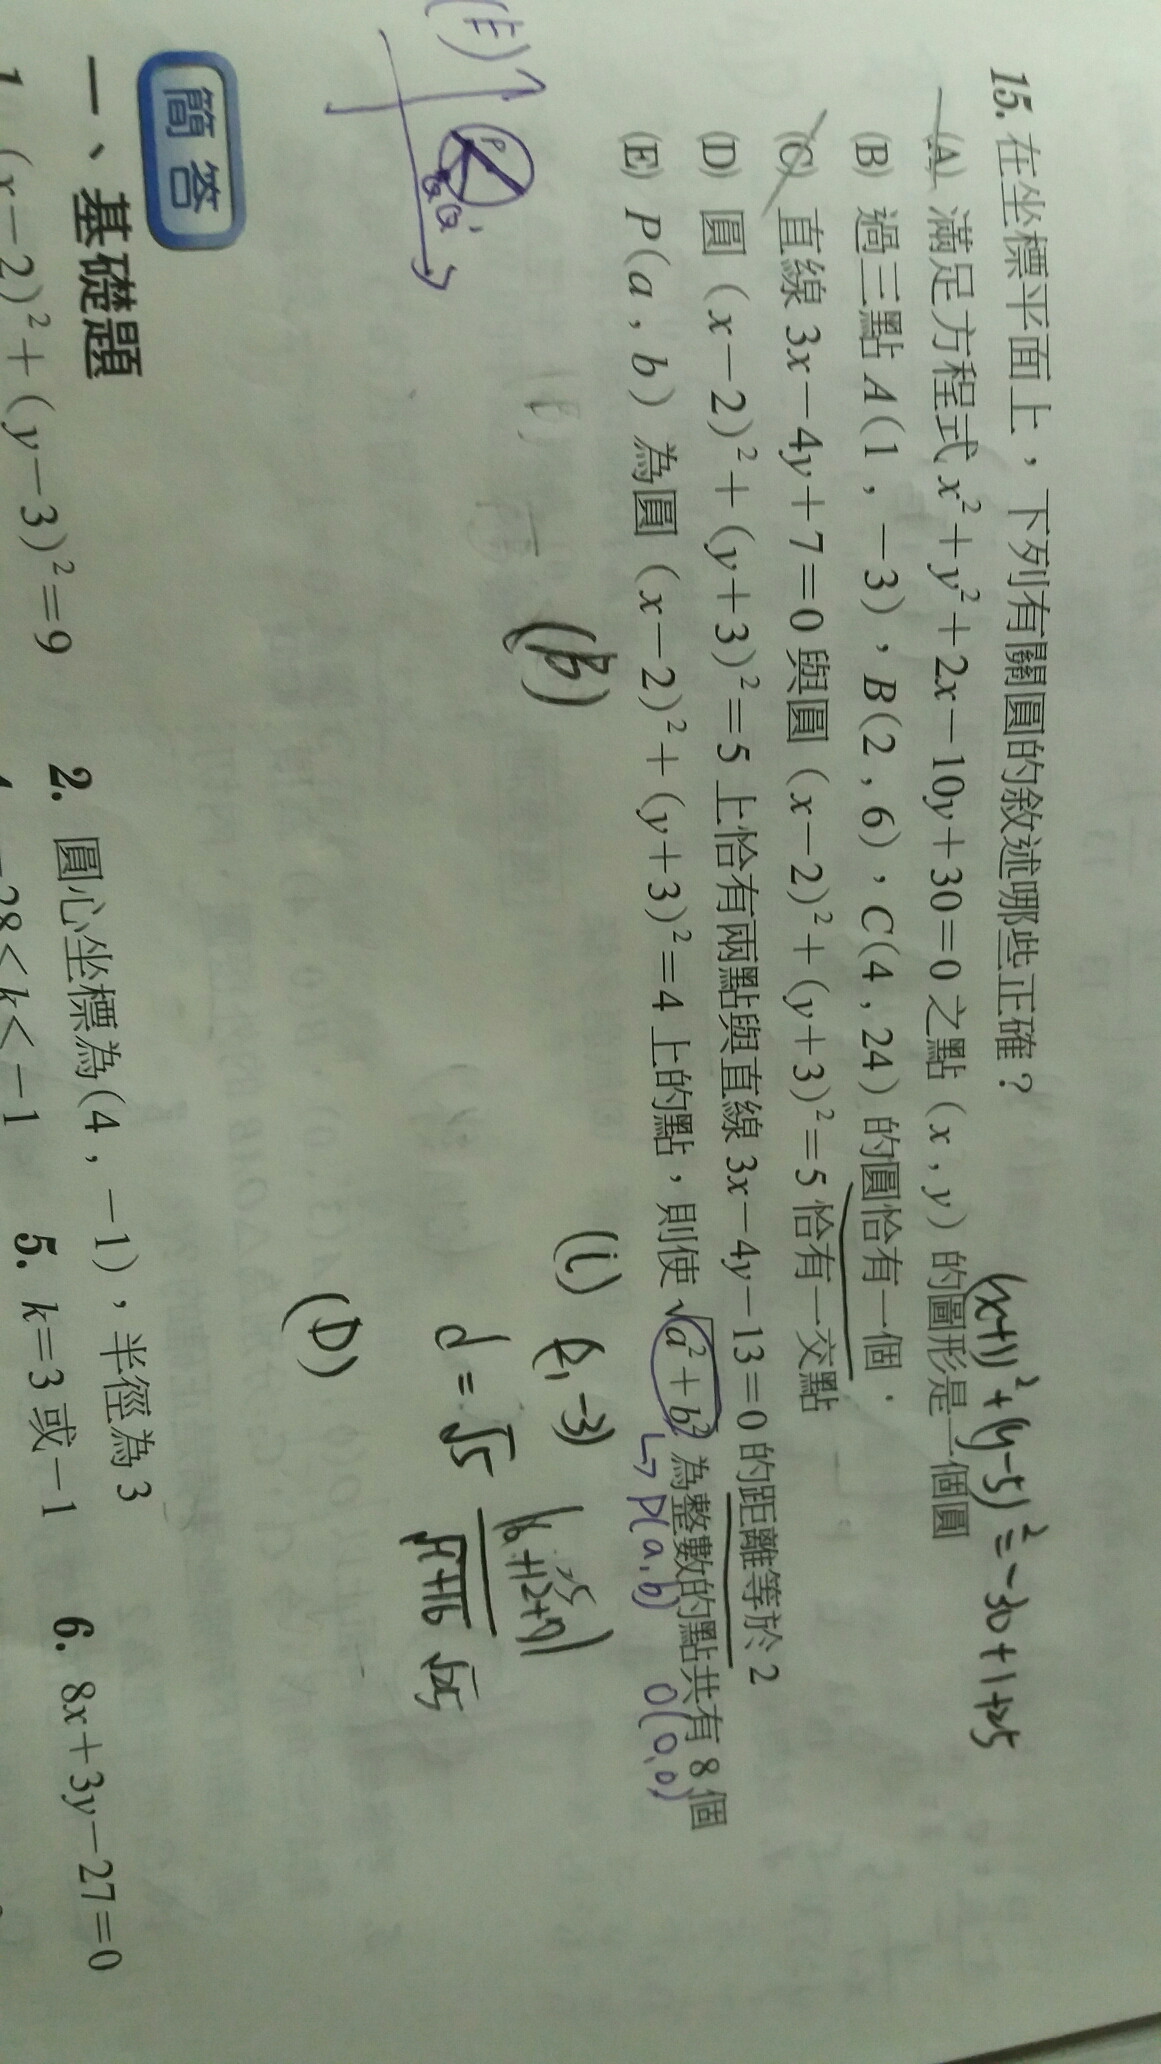 15. 在坐標平面上，下列有關圓的敘述哪些正確？
(A) 滿足方程式 x²+y²+2x－10y+30＝0 之點（x , y）的圖形是一個圓
(x+1)²+(y-5)²=-30+1+25
(B) 過三點 A(1 , －3)，B(2 , 6)，C(4 , 24) 的圓恰有一個
(C) 直線 3x－4y+7＝0 與圓（x－2)²+(y+3)²＝5 恰有一交點
(D) 圓（x－2)²+(y+3)²＝5 上恰有兩點與直線 3x－4y－13＝0 的距離等於 2
(E) P(a , b) 為圓（x－2)²+(y+3)²＝4 上的點，則使 √a²+b² 為整數的點共有 8 個
P(a,b) O(0,0)
(B)
(i) (2, -3)
d = √5
|6+12+7|
25
√9+16 √25
(D)
(E)
P
Q Q'
簡答
一、基礎題
1. (x－2)²+(y－3)²＝9
2. 圓心坐標為(4 , －1)，半徑為 3
－28＜k＜－1
5. k＝3 或－1
6. 8x+3y－27＝0